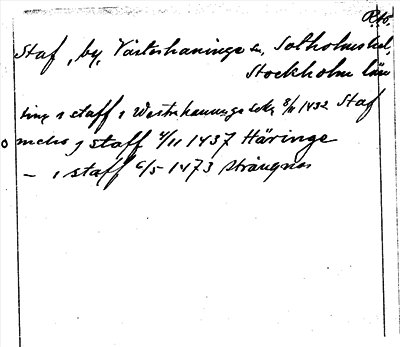 Staf, by, Västerhaninge sn, Sotholms hd,
Stockholms län
ting i staff i Westerhaninge sokn 8/11 1432 Staf
i staff 4/11 1437 Häringe
— i staff 6/5 1473 Strängnäs